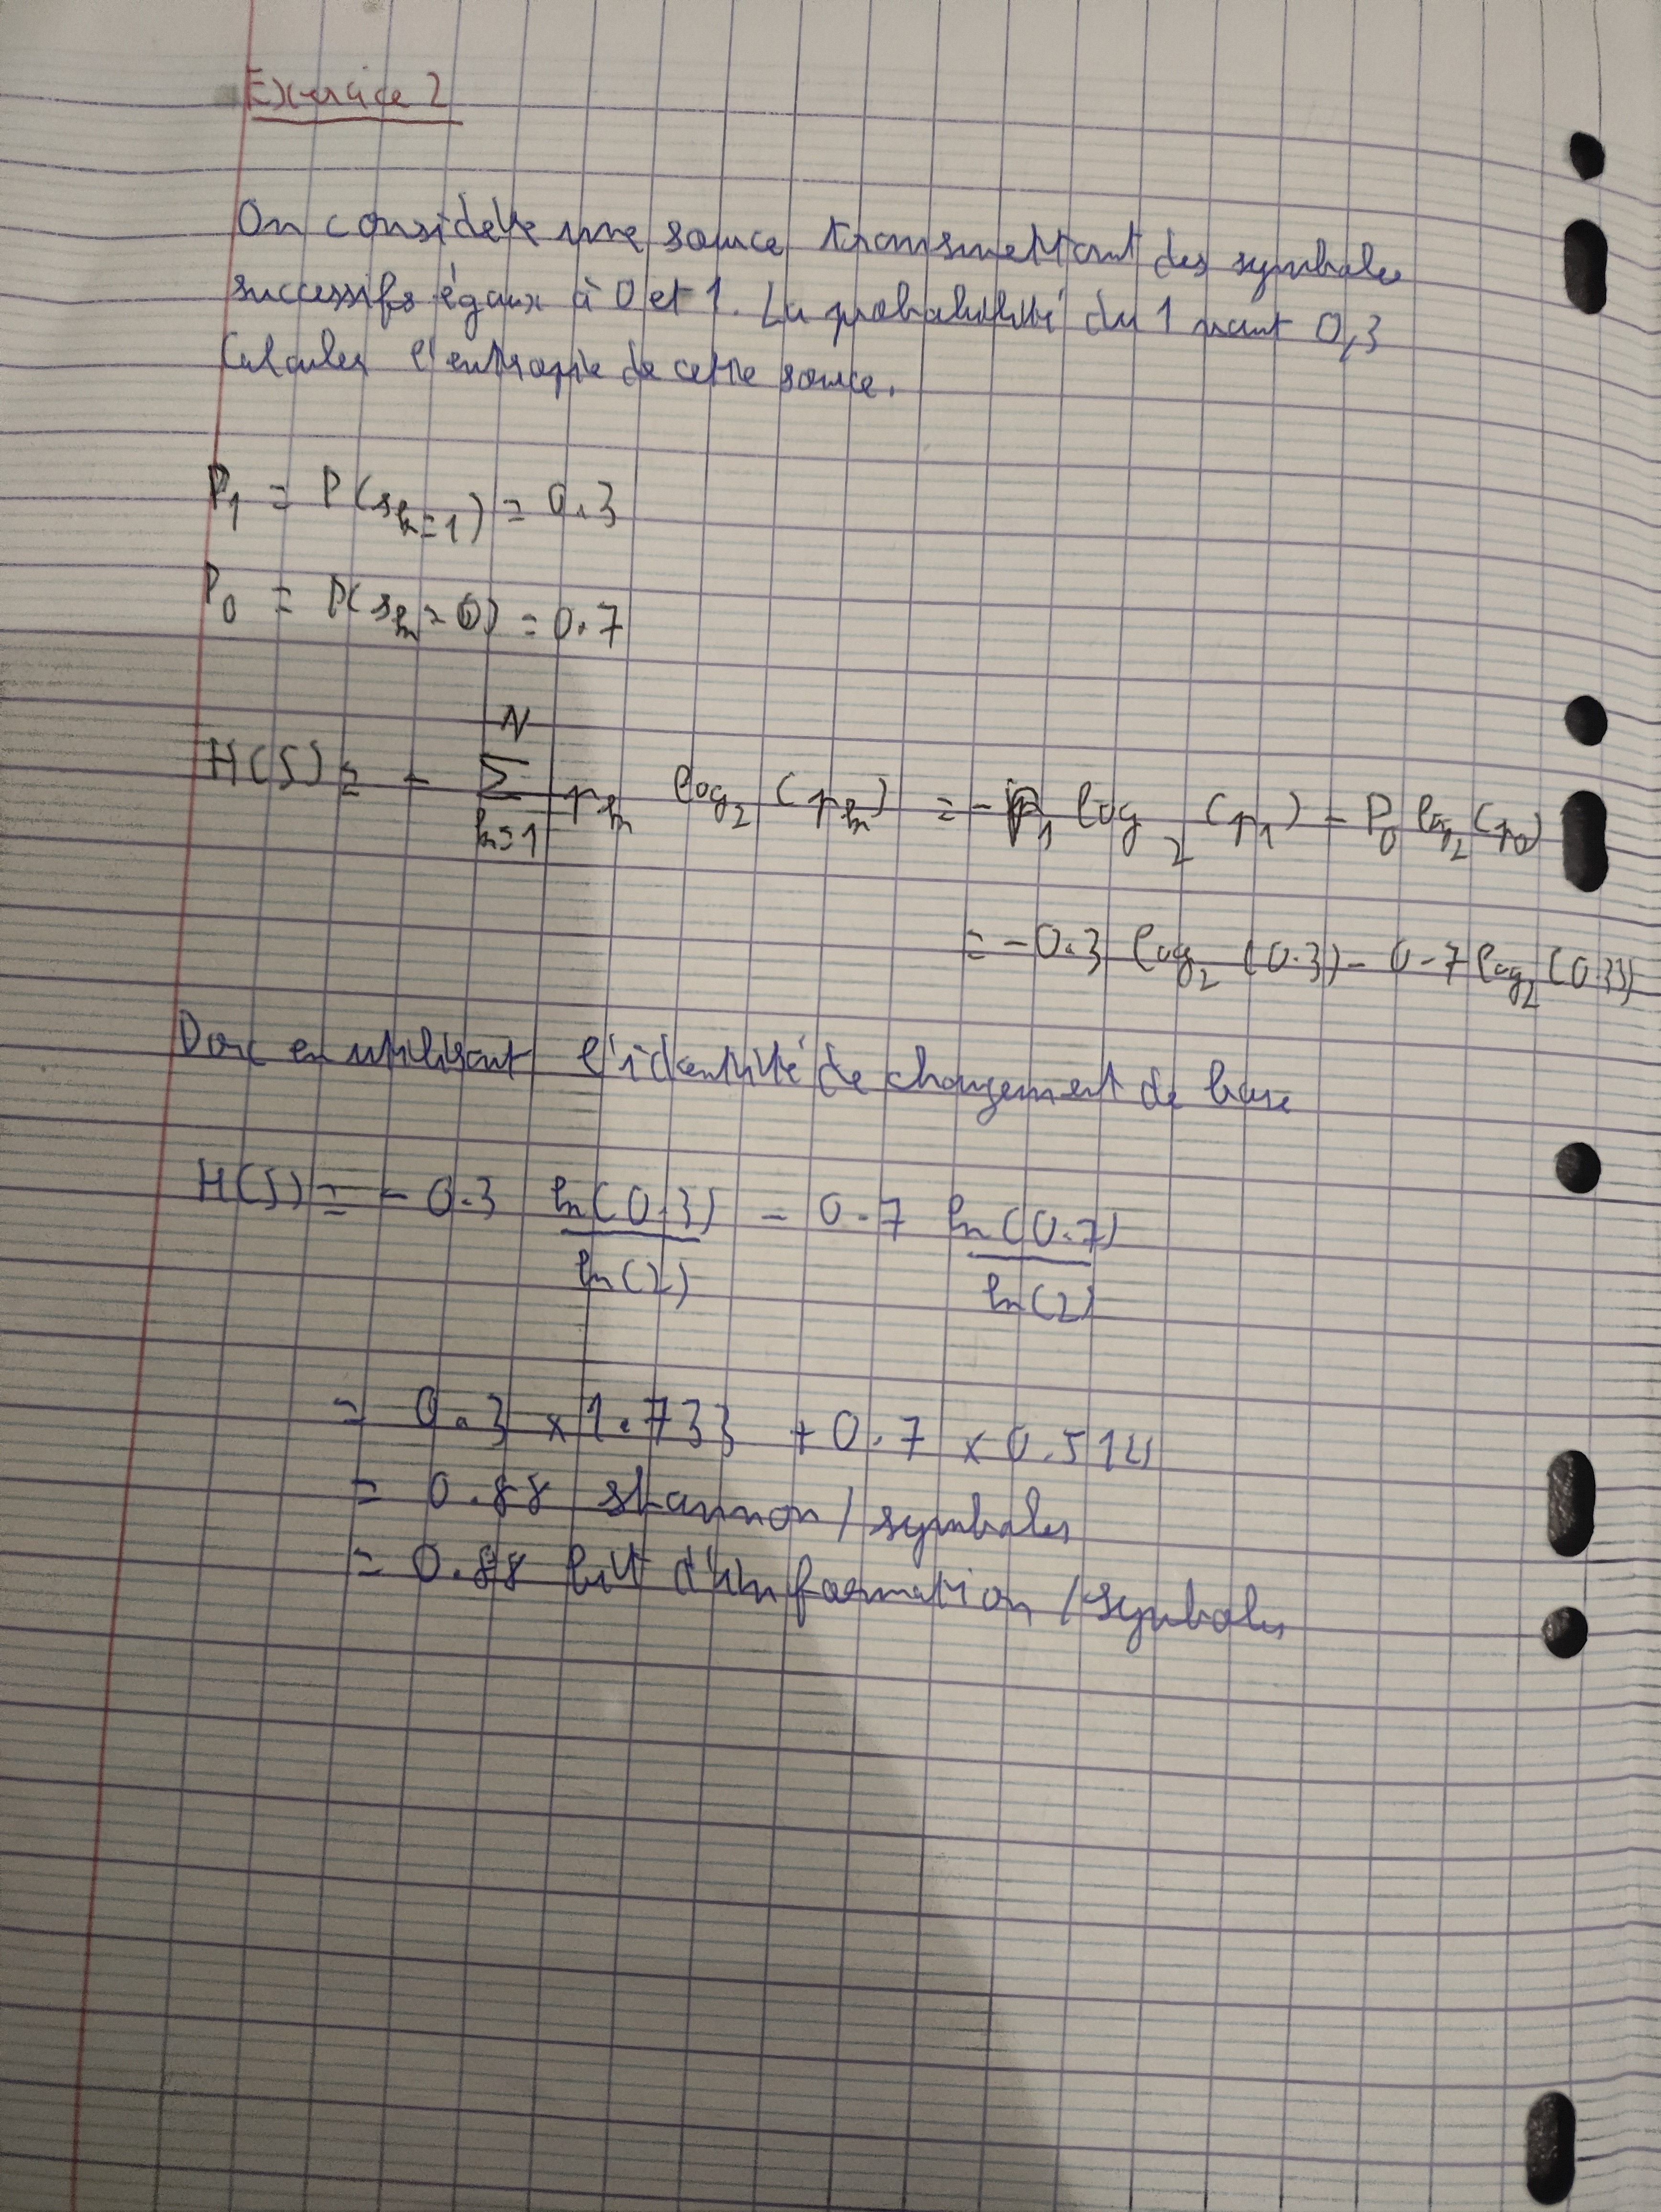 Exercice 2
On considère une source transmettant des symboles
successifs égaux à 0 et 1. La probabilité du 1 vaut 0,3
Calculer l'entropie de cette source.
P₁ = P(s_k=1) = 0.3
P₀ = P(s_k=0) = 0.7
N
H(S) = - Σ p_k log₂ (p_k) = - P₁ log₂ (p₁) - P₀ log₂ (p₀)
k=1
= -0.3 log₂ (0.3) - 0.7 log₂
Donc en utilisant l'identité de changement de base
H(S) = - 0.3 ln(0.3)/ln(2) - 0.7 ln(0.7)/ln(2)
= 0.3 × 1.733 + 0.7 × 0.514
= 0.88 shannon / symboles
= 0.88 bit d'information / symboles